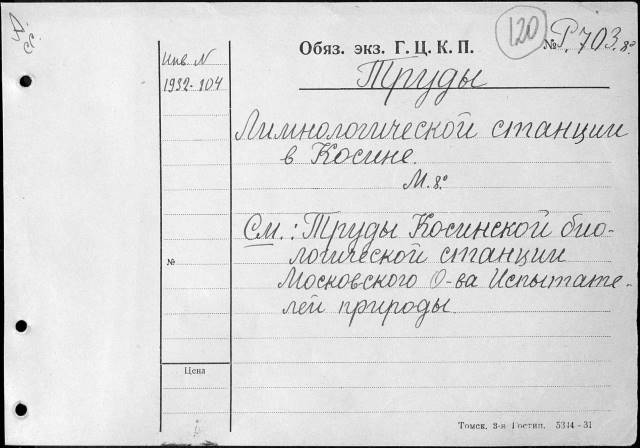 120
Обяз. экз. Г. Ц. К. П. № Р. 703. 8º
Инв. N
1932-104
Труды
Лимнологической станции
в Косине.
М. 8º
См.: Труды Косинской био-
логической станции
Московского О-ва Испытате-
лей природы.
№
Цена
Томск. 3-я Гостип. 5344-31